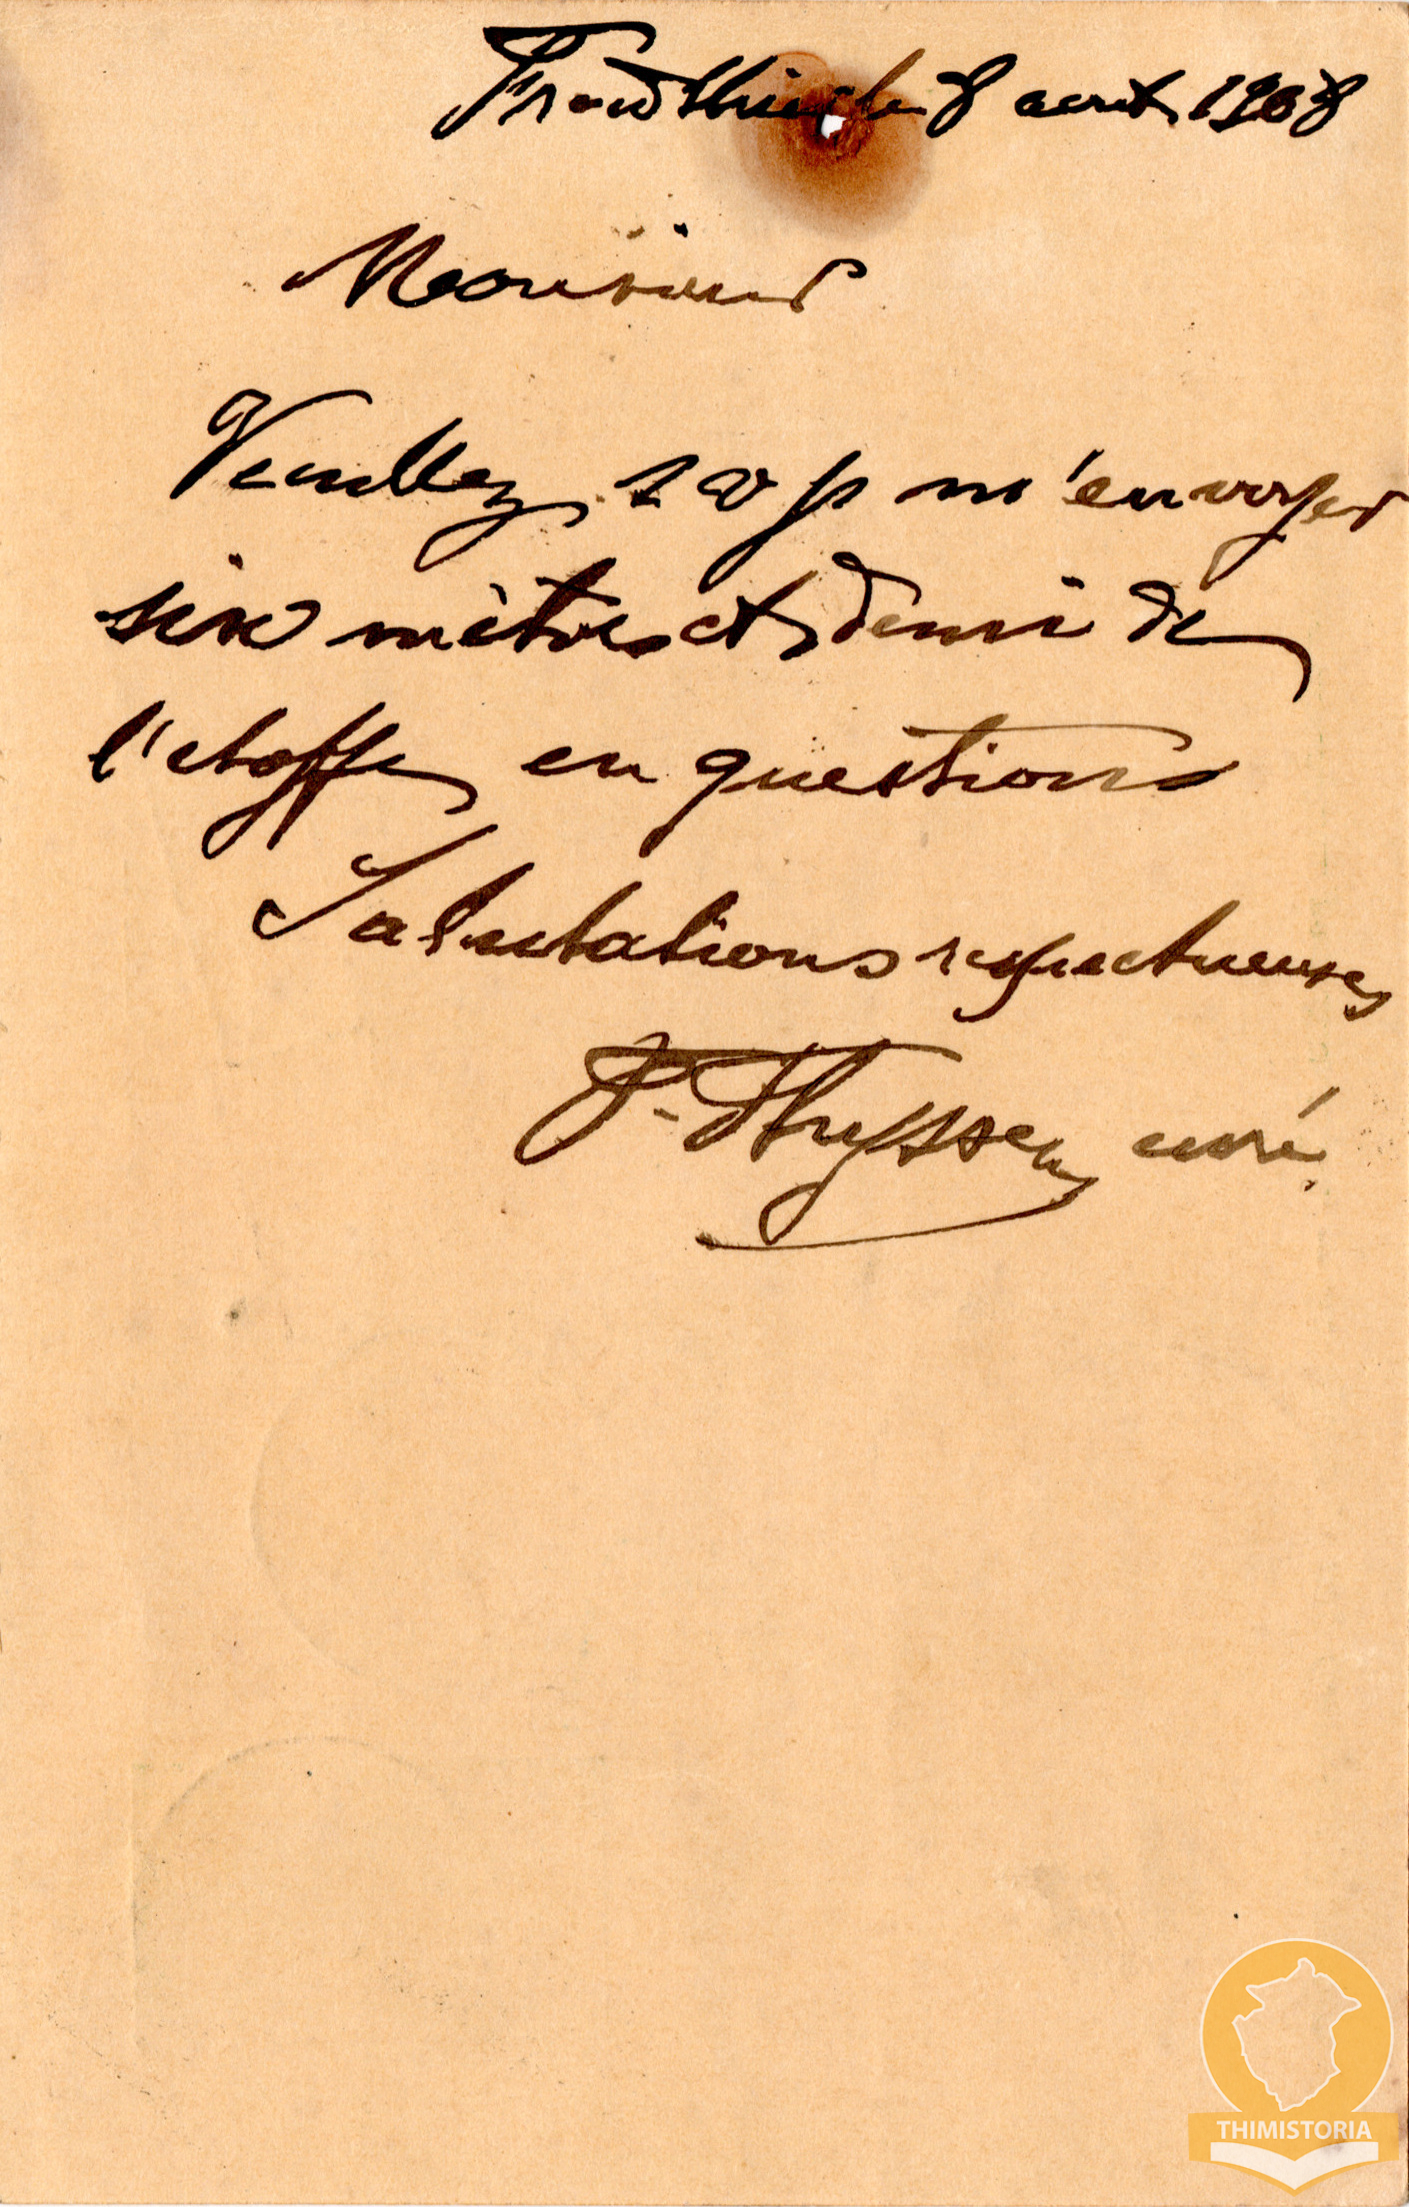 Froidthier le 8 août 1908
Monsieur
Veuillez s v p m'envoyer
six mètres et demi de
l'etoffe en question
Salutations respectueuses
P. Thyssen curé
THIMISTORIA